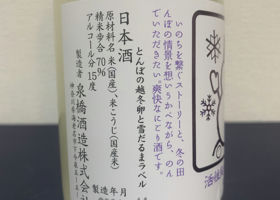 いのちを繋ぐストーリーと、冬の田
んぼの情景を想いうかべながら、のん
でいただきたい。爽快なにごり酒です。
とんぼの越冬卵と雪だるまラベル
日本酒
原材料名 米(国産)、米こうじ(国産米)
精米歩合 70%
アルコール分 15度
製造者 泉橋酒造株式会
神奈川県海老名市下今泉
製造年月